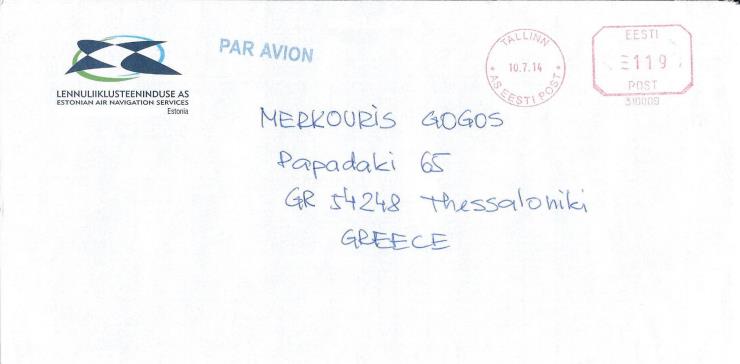 LENNULIIKLUSTEENINDUSE AS
ESTONIAN AIR NAVIGATION SERVICES
Estonia
PAR AVION
TALLINN
10.7.14
* AS EESTI POST *
EESTI
119
POST
310009
MERKOURIS GOGOS
Papadaki 65
GR 54248 Thessaloniki
GREECE